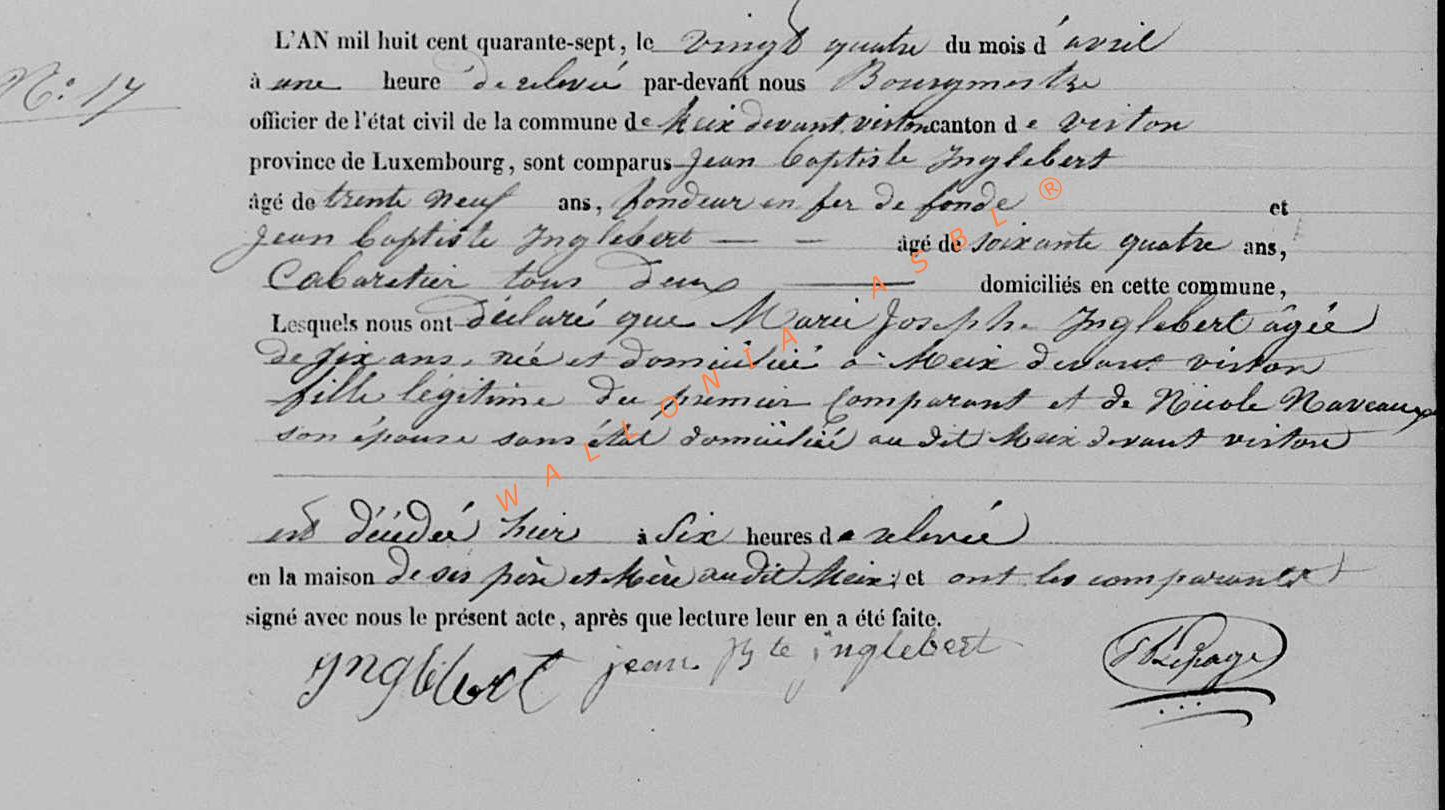 L'AN mil huit cent quarante-sept, le vingt quatre du mois d'avril
N.o 17
à une heure de relevée par-devant nous Bourgmestre
officier de l'état civil de la commune de Meix devant virton canton de virton
province de Luxembourg, sont comparus Jean baptiste Inglebert
âgé de trente neuf ans, fondeur en fer de fonde et
Jean baptiste Inglebert — — âgé de soixante quatre ans,
Cabaretier tous deux — domiciliés en cette commune,
Lesquels nous ont déclaré que Marie Josephe Inglebert âgée
de six ans, née et domiciliée à Meix devant virton
fille légitime du premier Comparant et de Nicole Naveaux
son épouse sans état domiciliée au dit Meix devant virton
est décédée hier à Six heures de relevée
en la maison de ses père et Mère audit Meix; et ont les comparants
signé avec nous le présent acte, après que lecture leur en a été faite.
Inglebert jean Bte inglebert Lepage
WALLONIA ASBL ®